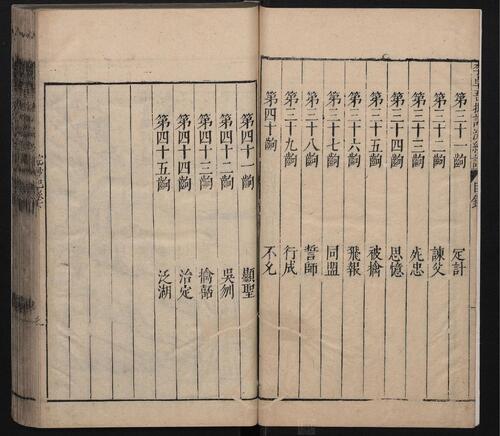 目錄
第三十一齣 定計
第三十二齣 諫父
第三十三齣 死忠
第三十四齣 思憶
第三十五齣 被擒
第三十六齣 飛報
第三十七齣 同盟
第三十八齣 誓師
第三十九齣 行成
第四十齣 不允
第四十一齣 顯聖
第四十二齣 吳刎
第四十三齣 擒嚭
第四十四齣 治定
第四十五齣 泛湖